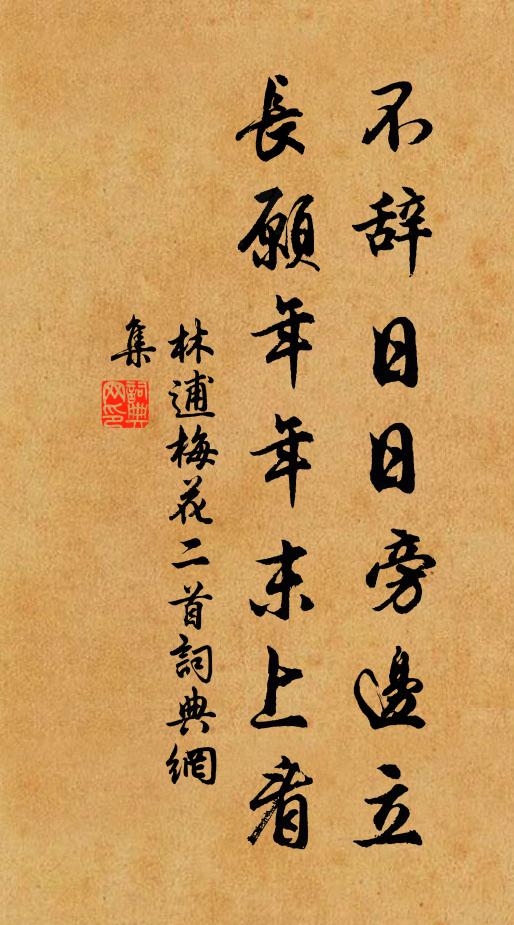 不辞日日旁邊立
長願年年末上看
林逋梅花二首詞典網
集
詞典
网印